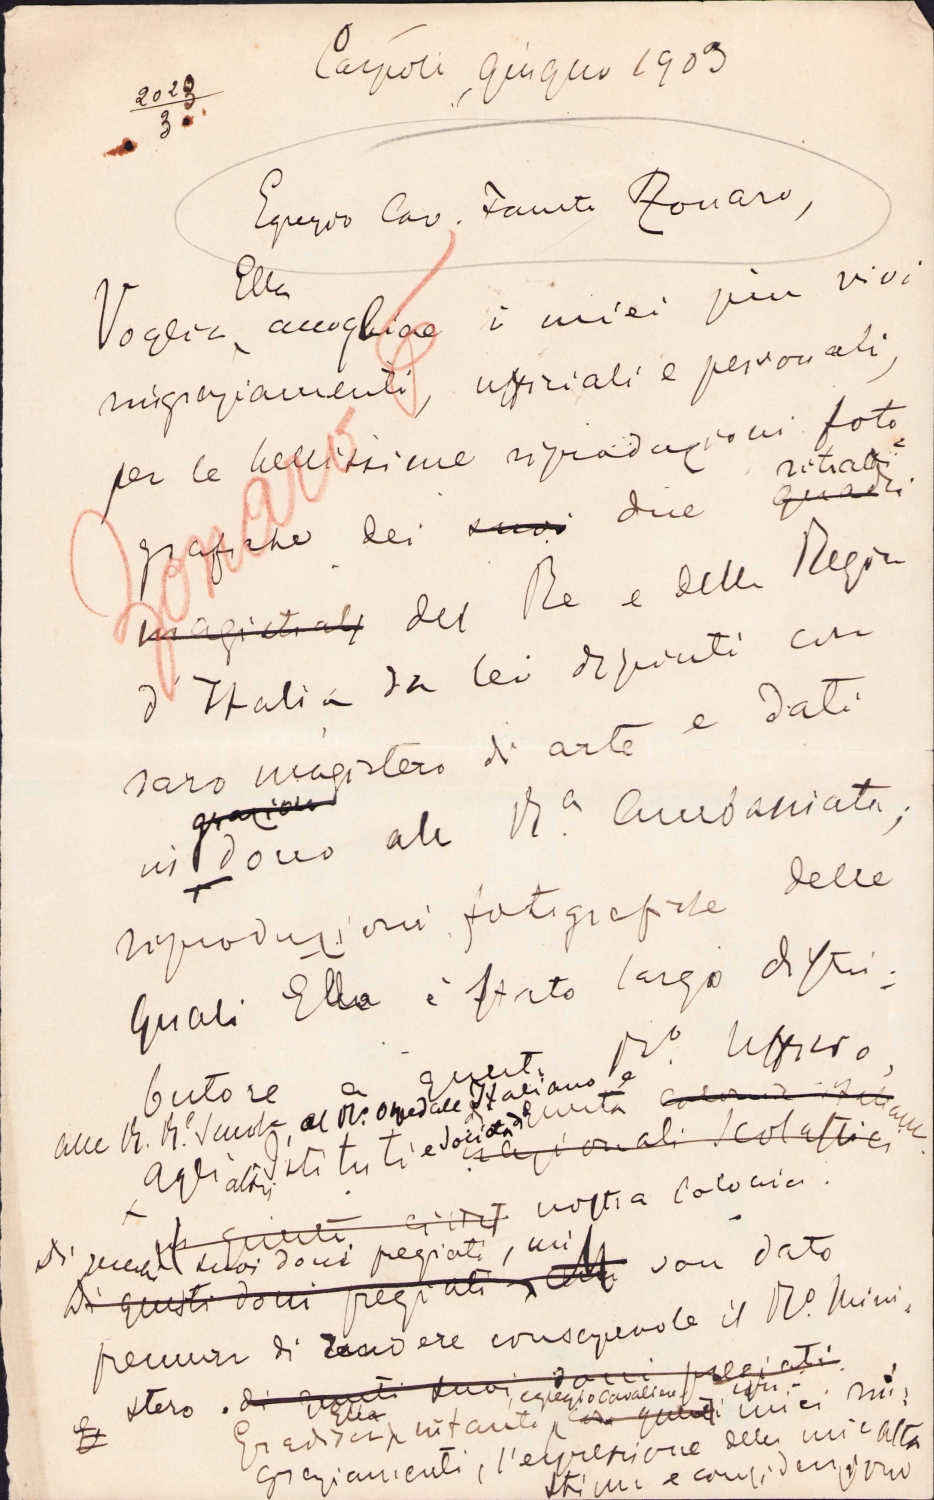 giugno 1903
2023
3
Egregio Cav. Fausto Zonaro,
Ella
Voglia accogliere i miei più vivi
ringraziamenti, ufficiali e personali,
per le bellissime riproduzioni foto
ritratti
grafiche dei suoi due quadri
magistrali del Re e della Regina
d'Italia da lei dipinti con
raro magistero di arte e dati
grazioso
in dono alla Rª Ambasciata;
riproduzioni fotografiche delle
quali Ella è stato largo distri-
butore a questo Rº. Ufficio,
alle R. Rᵉ Scuole, al Rº. Ospedale Italiano e
agli altri Istituti e Società di questa colonia italiana
nazionali scolastici
questa città nostra colonia.
Di questi suoi doni pregiati, mi
Di questi doni pregiati son dato
premura di rendere consapevole il Rº. Mini-
stero. di questi suoi doni pregiati.
Gradisca Ella intanto, egregio Cavaliere, questi miei rin-
graziamenti, l'espressione della mia alta
stima e considerazione
Zonaro F